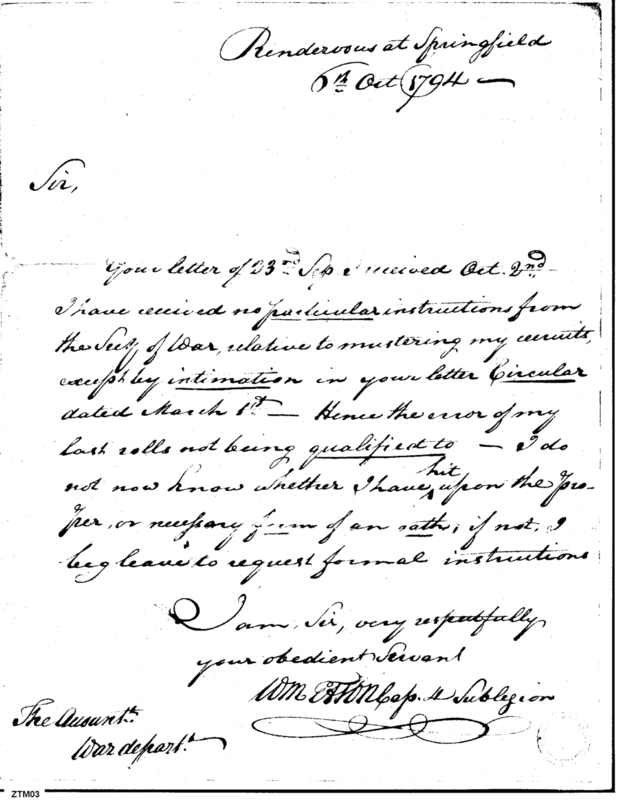 Rendervous at Springfield
6th Oct 1794 —
Sir,
Your letter of 23rd Sep. I received Oct. 2nd —
I have received no particular instructions from
the Secy of War, relative to mustering my recruits,
except by intimation in your letter Circular
dated March 1st — Hence the error of my
last rolls not being qualified to — I do
not now know whether I have hit upon the pro-
per, or necessary form of an oath; if not, I
beg leave to request formal instructions
I am, Sir, very respectfully
your obedient Servant
Wm Eaton Cap. 4 Sublegion
The Accountt
War departt
ZTM03